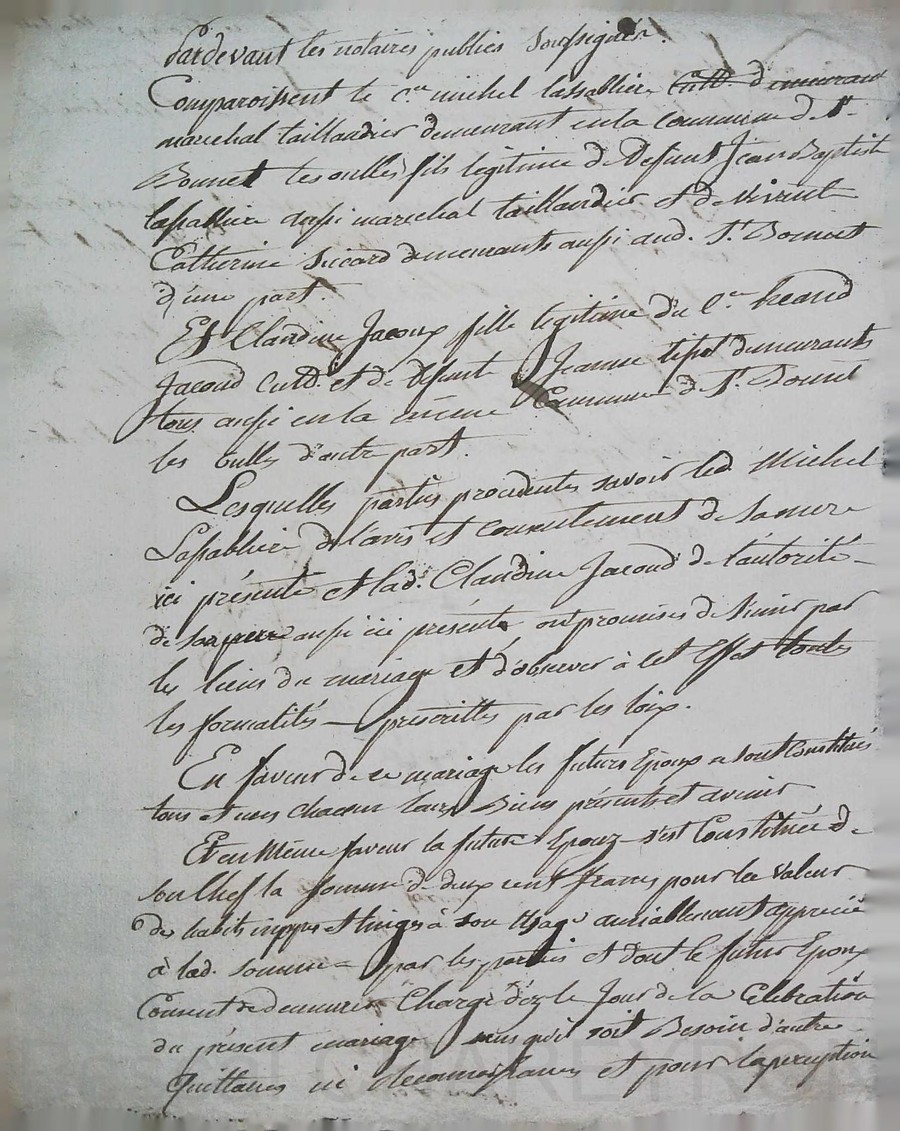 Pardevant les notaires publics soussignés.
Comparoissent le c.en michel lassabliere Cult. demeurant
marechal taillandier demeurant en la commune de St.
Bonnet les oulles fils legitime de defunt Jean Baptiste
lassabliere aussi marechal taillandier et de vivente
Catherine Sicard demeurants aussi aud. St. Bonnet
d'une part.
Et Claudine Jacoux fille legitime du C.en
Jacoud Cult. et de defunte Jeanne demeurants
tous aussi en la même Commune de St. Bonnet
les oulles d'autre part.
Lesquelles parties procedentes savoir led. Michel
Lassabliere de l'avis et consentement de sa mere
ici présente et lad. Claudine Jacoud de l'autorité
de son pere aussi ici présent ont promises de s'unir par
les liens du mariage et d'observer à cet effet toutes
les formalités prescrittes par les loix.
En faveur de ce mariage les futurs Epoux se sont Constitués
tous et uns chacun leurs Biens présents et avenir
Et en Même faveur la future Epouze s'est Constituée de
son Chef la somme de deux cent francs pour la valeur
des habits nippes et linges à son Usage amiablement apprecié
à lad. somme par les parties et dont le futur Epoux
Consent de demeurer Chargé dèz le Jour de la Célébration
du présent mariage sans qu'il soit Besoin d'autre
quittances ni reconnoissances et pour la perception